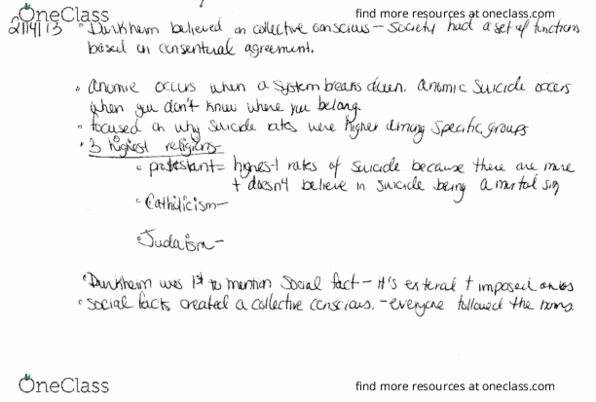 OneClass
find more resources at oneclass.com
2/14/13 • Durkheim believed in collective conscious - society had a set of functions
based on consentual agreement.
• anomie occurs when a system breaks down. anomic suicide occurs
when you don't know where you belong.
• focused on why suicide rates were higher among specific groups
• 3 highest religions
• protestant = highest rates of suicide because there are more
+ doesn't believe in suicide being a mortal sin
• Catholicism-
• Judaism-
• Durkheim was 1st to mention social fact - it's external + imposed on us
• social facts created a collective conscious. - everyone followed the norms.
OneClass
find more resources at oneclass.com